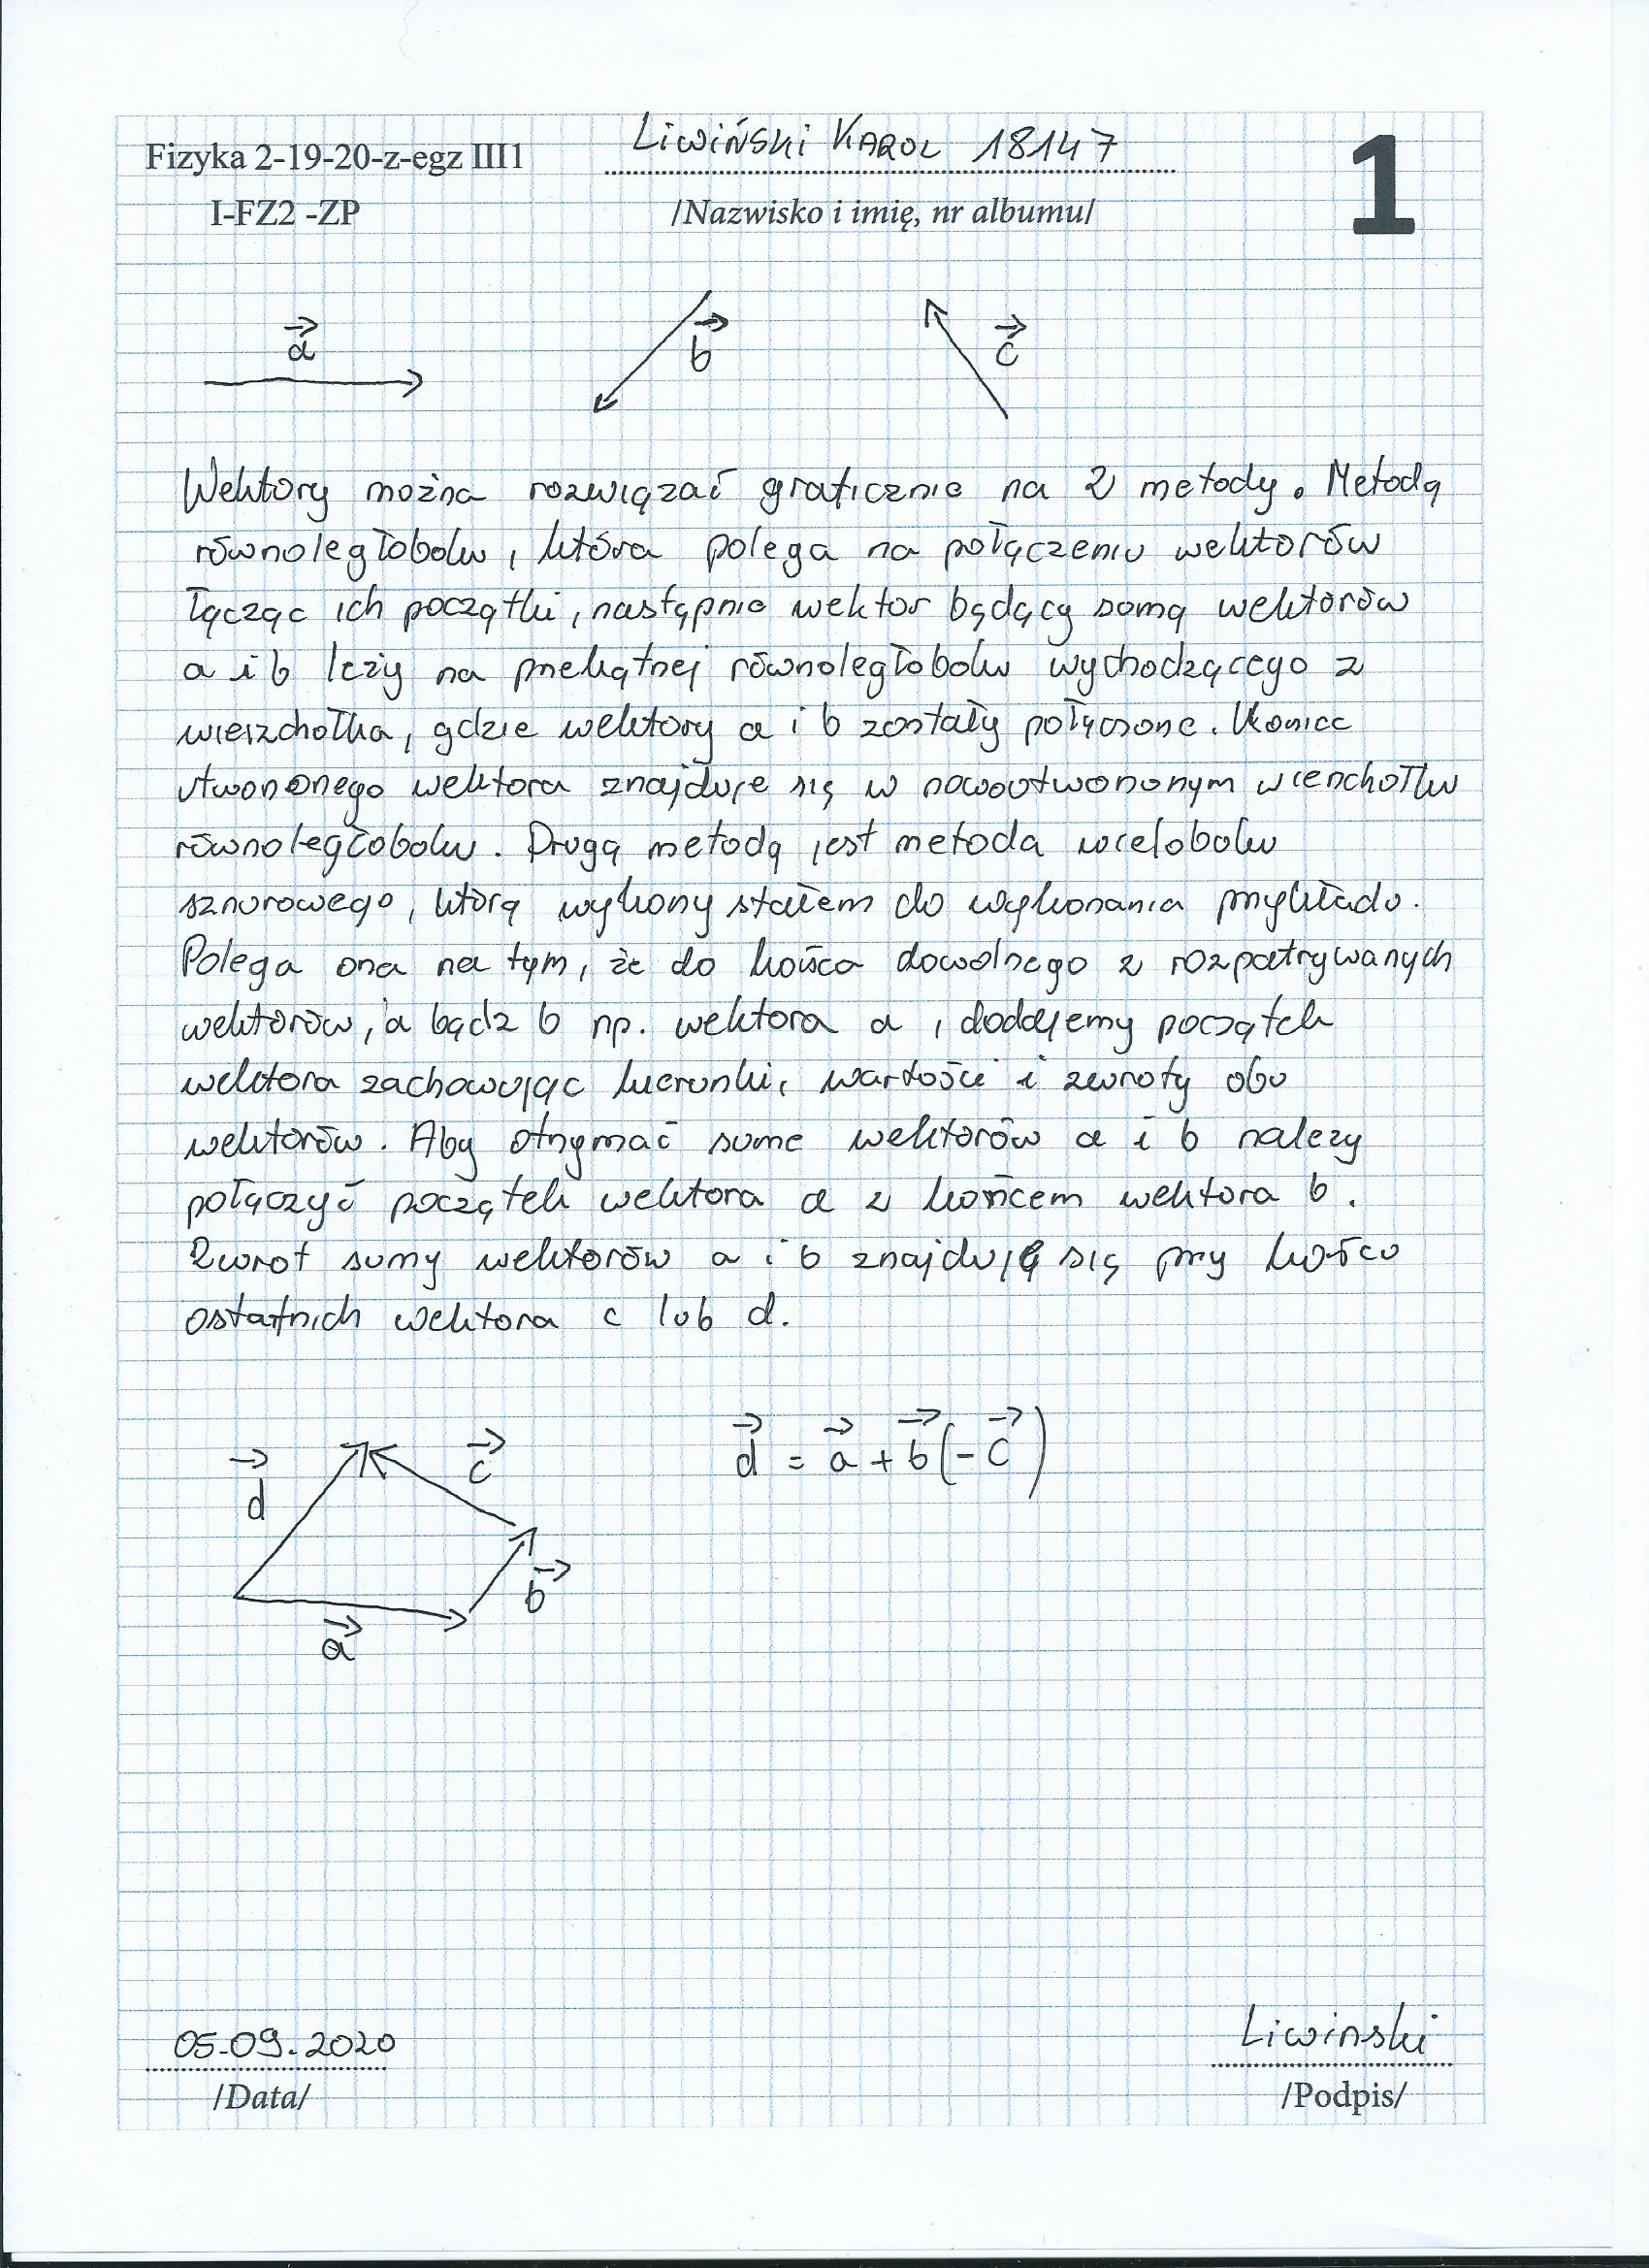 Fizyka 2-19-20-z-egz III1
Liwiński Karol 18147
1
I-FZ2 -ZP
/Nazwisko i imię, nr albumu/
a
b
c
Wektory można rozwiązać graficznie na 2 metody. Metodą
równoległoboku, która polega na połączeniu wektorów
łącząc ich początki, następnie wektor będący sumą wektorów
a i b leży na przekątnej równoległoboku wychodzącego z
wieszchołka, gdzie wektory a i b zostały połączone. Koniec
utworzonego wektora znajduje się w nowoutworzonym wierzchołku
równoległoboku. Drugą metodą jest metoda wieloboku
sznurowego, którą wykorzystałem do wykonania przykładu.
Polega ona na tym, że do końca dowolnego z rozpatrywanych
wektorów, a bądz b np. wektora a, dodajemy początek
wektora zachowując kierunki, wartości i zwroty obu
wektorów. Aby otrzymać sume wektorów a i b nalezy
połączyć początek wektora a z końcem wektora b.
Zwrot sumy wektorów a i b znajduję się przy końcu
ostatnich wektora c lub d.
d
c
b
a
d = a + b (- c)
05.09.2020
/Data/
Liwinski
/Podpis/